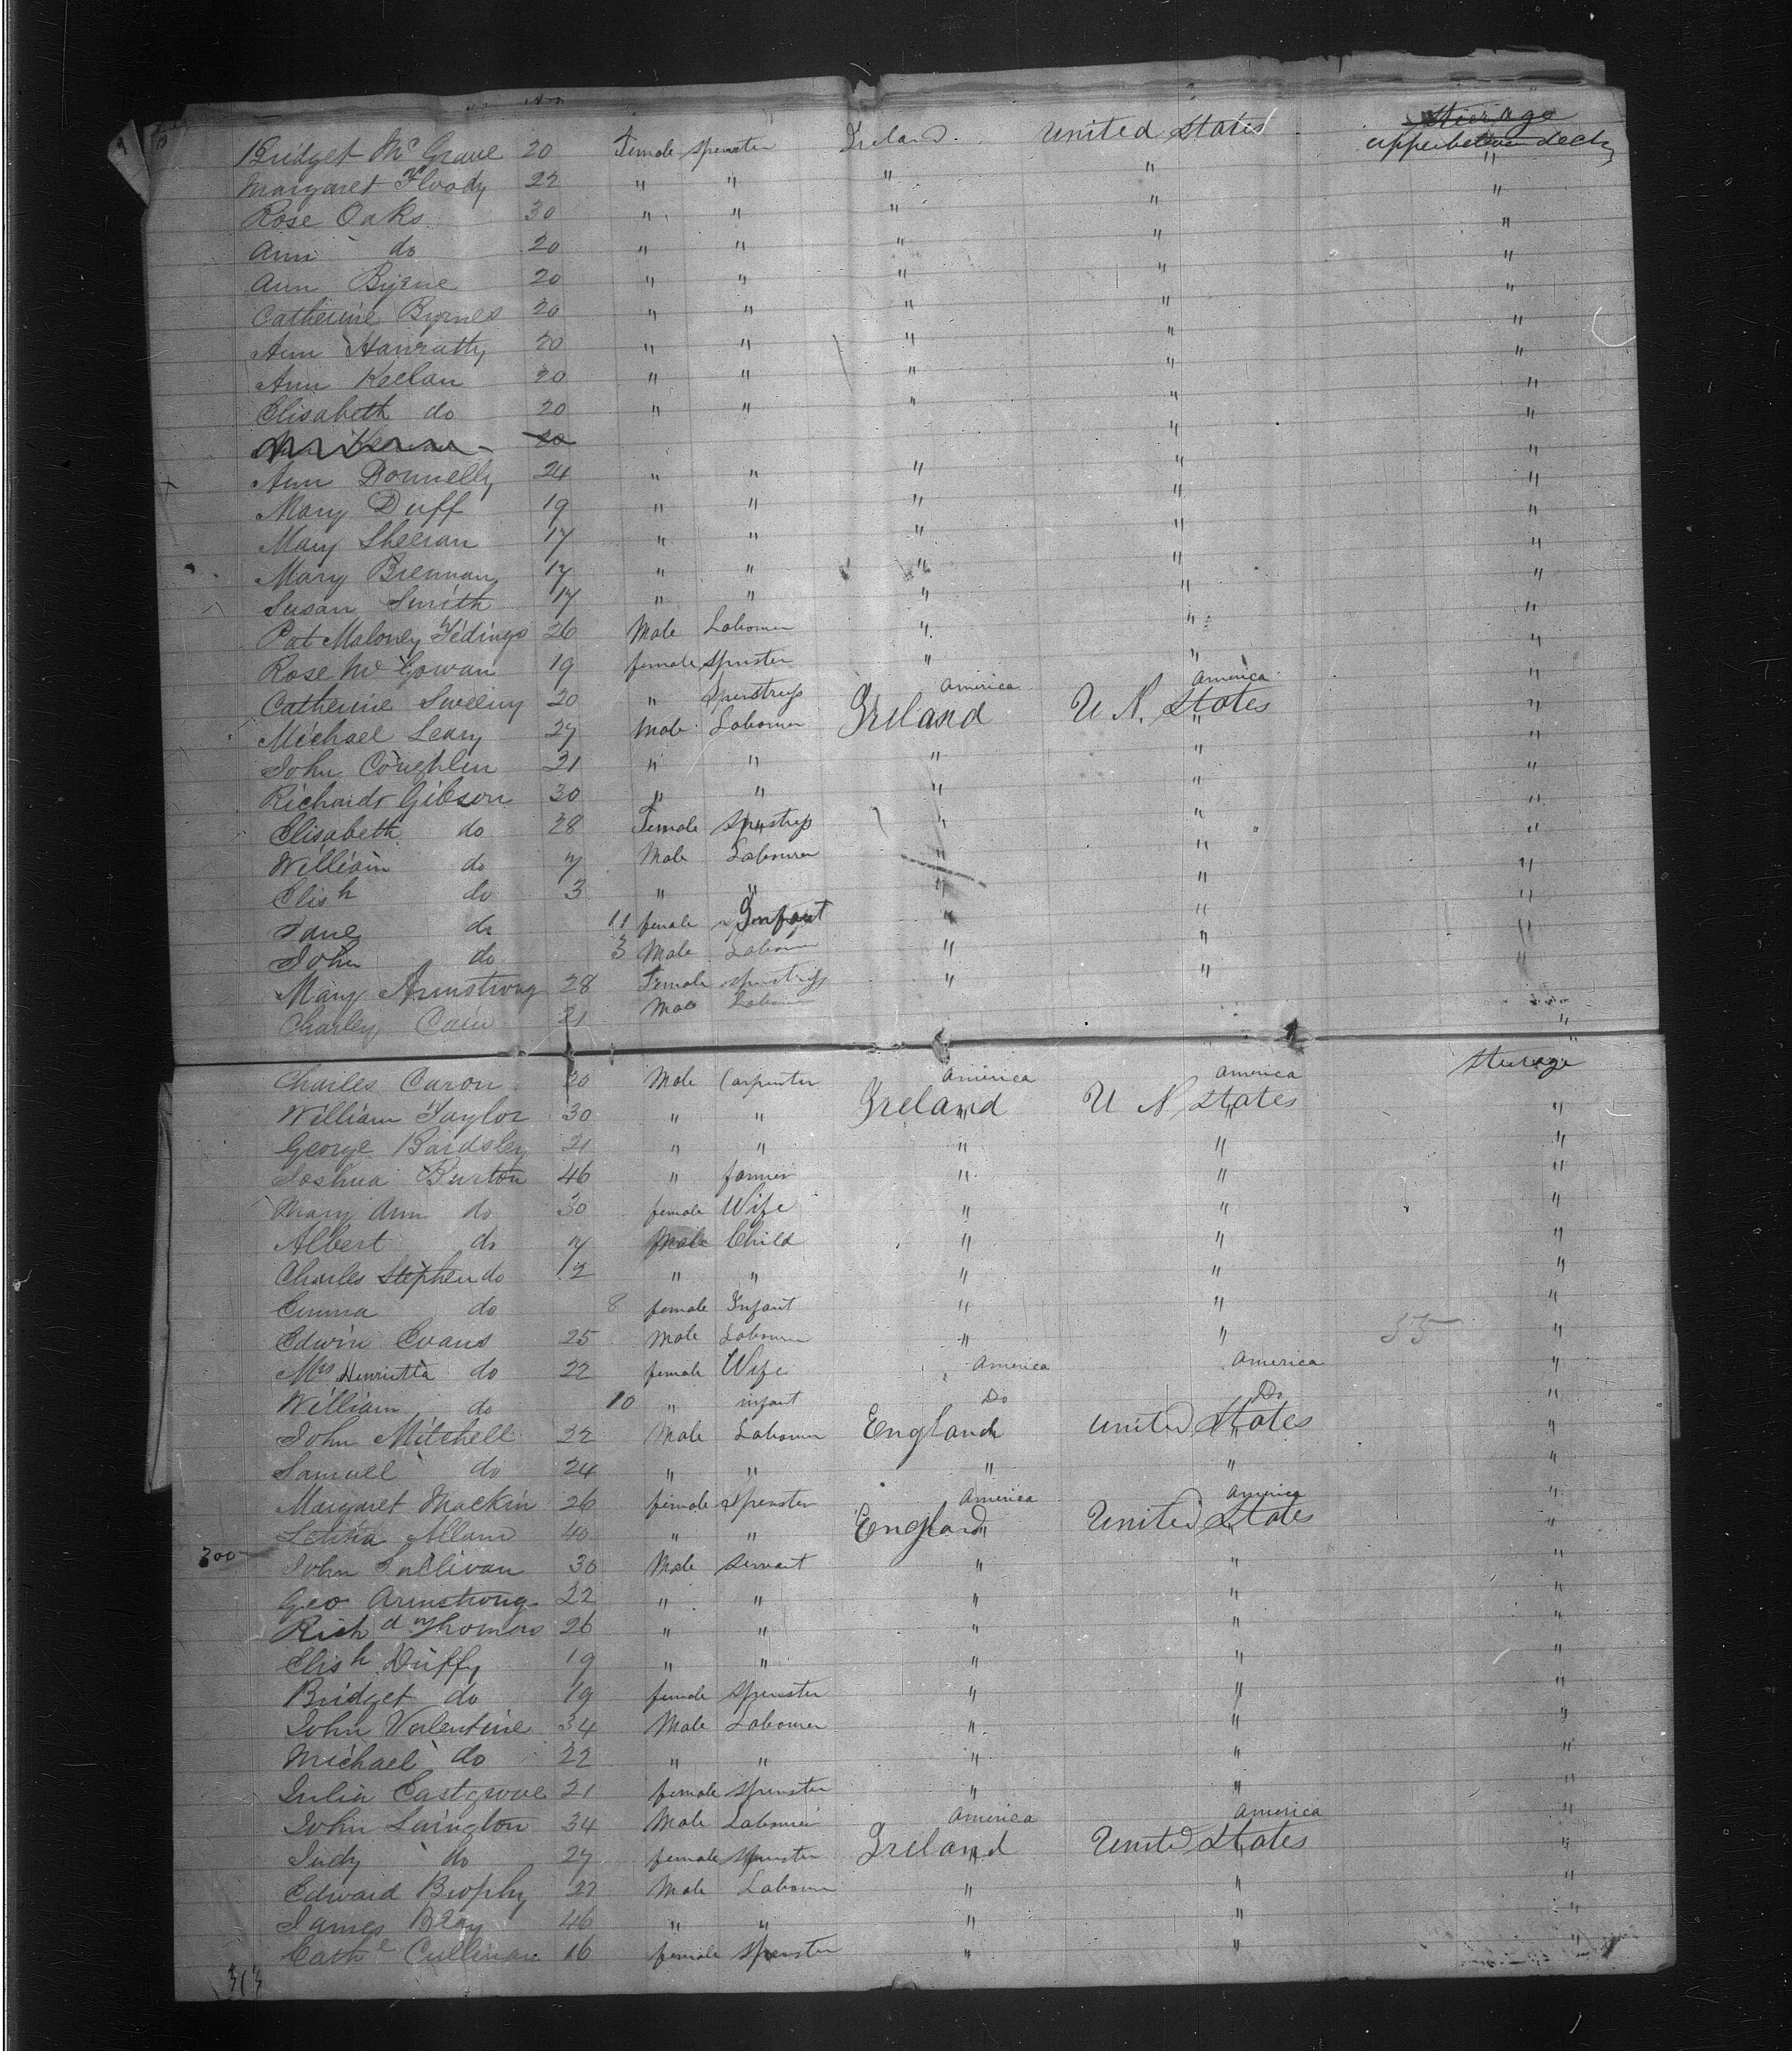 Bridget McGrave 20 Female Spenster Ireland. United States Stierage
upper between decks
Margaret Floody 22 " " " " "
Rose Oaks 30 " " " " "
Ann do 20 " " " " "
Ann Byrne 20 " " " " "
Catherine Byrnes 20 " " " " "
Ann Hanratty 20 " " " " "
Ann Keelan 20 " " " " "
Elisabeth do 20 " " " " "
20 " "
Ann Donnelly 24 " " " " "
Mary Duff 19 " " " " "
Mary Sheeran 17 " " " " "
Mary Brennan 17 " " " " "
Susan Smith 17 " " " " "
Pat Maloney 26 Male Labourer " " "
Rose McGowan 19 female Spinster " " "
Catherine Sweeny 20 " America America "
Michael Leary 27 Male Labourer Ireland U N. States "
John Coughlen 21 " " " " "
Richard Gibson 30 " " " " "
Elisabeth do 28 Female " " "
William do 7 Male Labourer " " "
Elish do 3 " " " " "
Jane do 11 female Infant " " "
John do 3 Male Labourer " " "
Mary Armstrong 28 Female " " "
Charley Cain 21 Male Labourer "
Charles Caron 20 Male Carpenter America America Steerage
William Taylor 30 " " Ireland U N States "
George Bardsley 21 " " " " "
Joshua Burton 46 " farmer " " "
Mary Ann do 30 female Wife " " "
Albert do 7 Male Child " " "
Charles Stephen do 12 " " " " "
Emma do 8 female Infant " " "
Edwin Evans 25 Male Labourer " " 55 "
Mrs Henrietta do 22 female Wife America America "
William do 10 " infant Do Do "
John Mitchell 22 Male Labourer England United States "
Samuel do 24 " " " " "
Margaret Mackin 26 female Spenster America America "
Allam 40 " " England United States "
300 John Sullivan 30 Male Servant " " "
Geo Armstrong 22 " " " " "
Richd Thomas 26 " " " " "
Elish Duffy 19 " " " " "
Bridget do 19 female Spenster " " "
John Valentine 34 Male Labourer " " "
Michael do 22 " " " " "
Julia Eastgrove 21 female Spenster " " "
John Laington 34 Male Labourer America America "
Judy do 27 female Spenster Ireland United States "
Edward Brophy 22 Male Labourer " " "
James Bray 46 " " " " "
Cathe Cullinan 16 female Spenster " " "
313